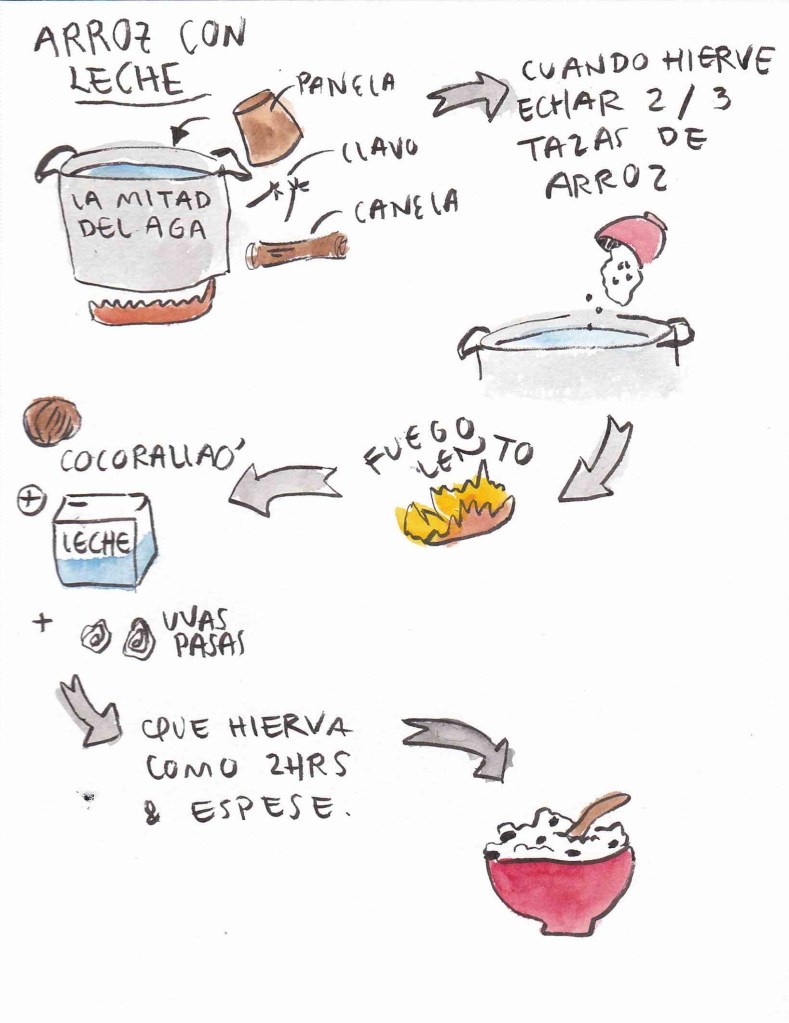 ARROZ CON
LECHE
PANELA
CLAVO
CANELA
LA MITAD
DEL AGA
CUANDO HIERVE
ECHAR 2/3
TAZAS DE
ARROZ
FUEGO
LENTO
COCORALLAO'
+
LECHE
+
UVAS
PASAS
QUE HIERVA
COMO 2HRS
& ESPESE.